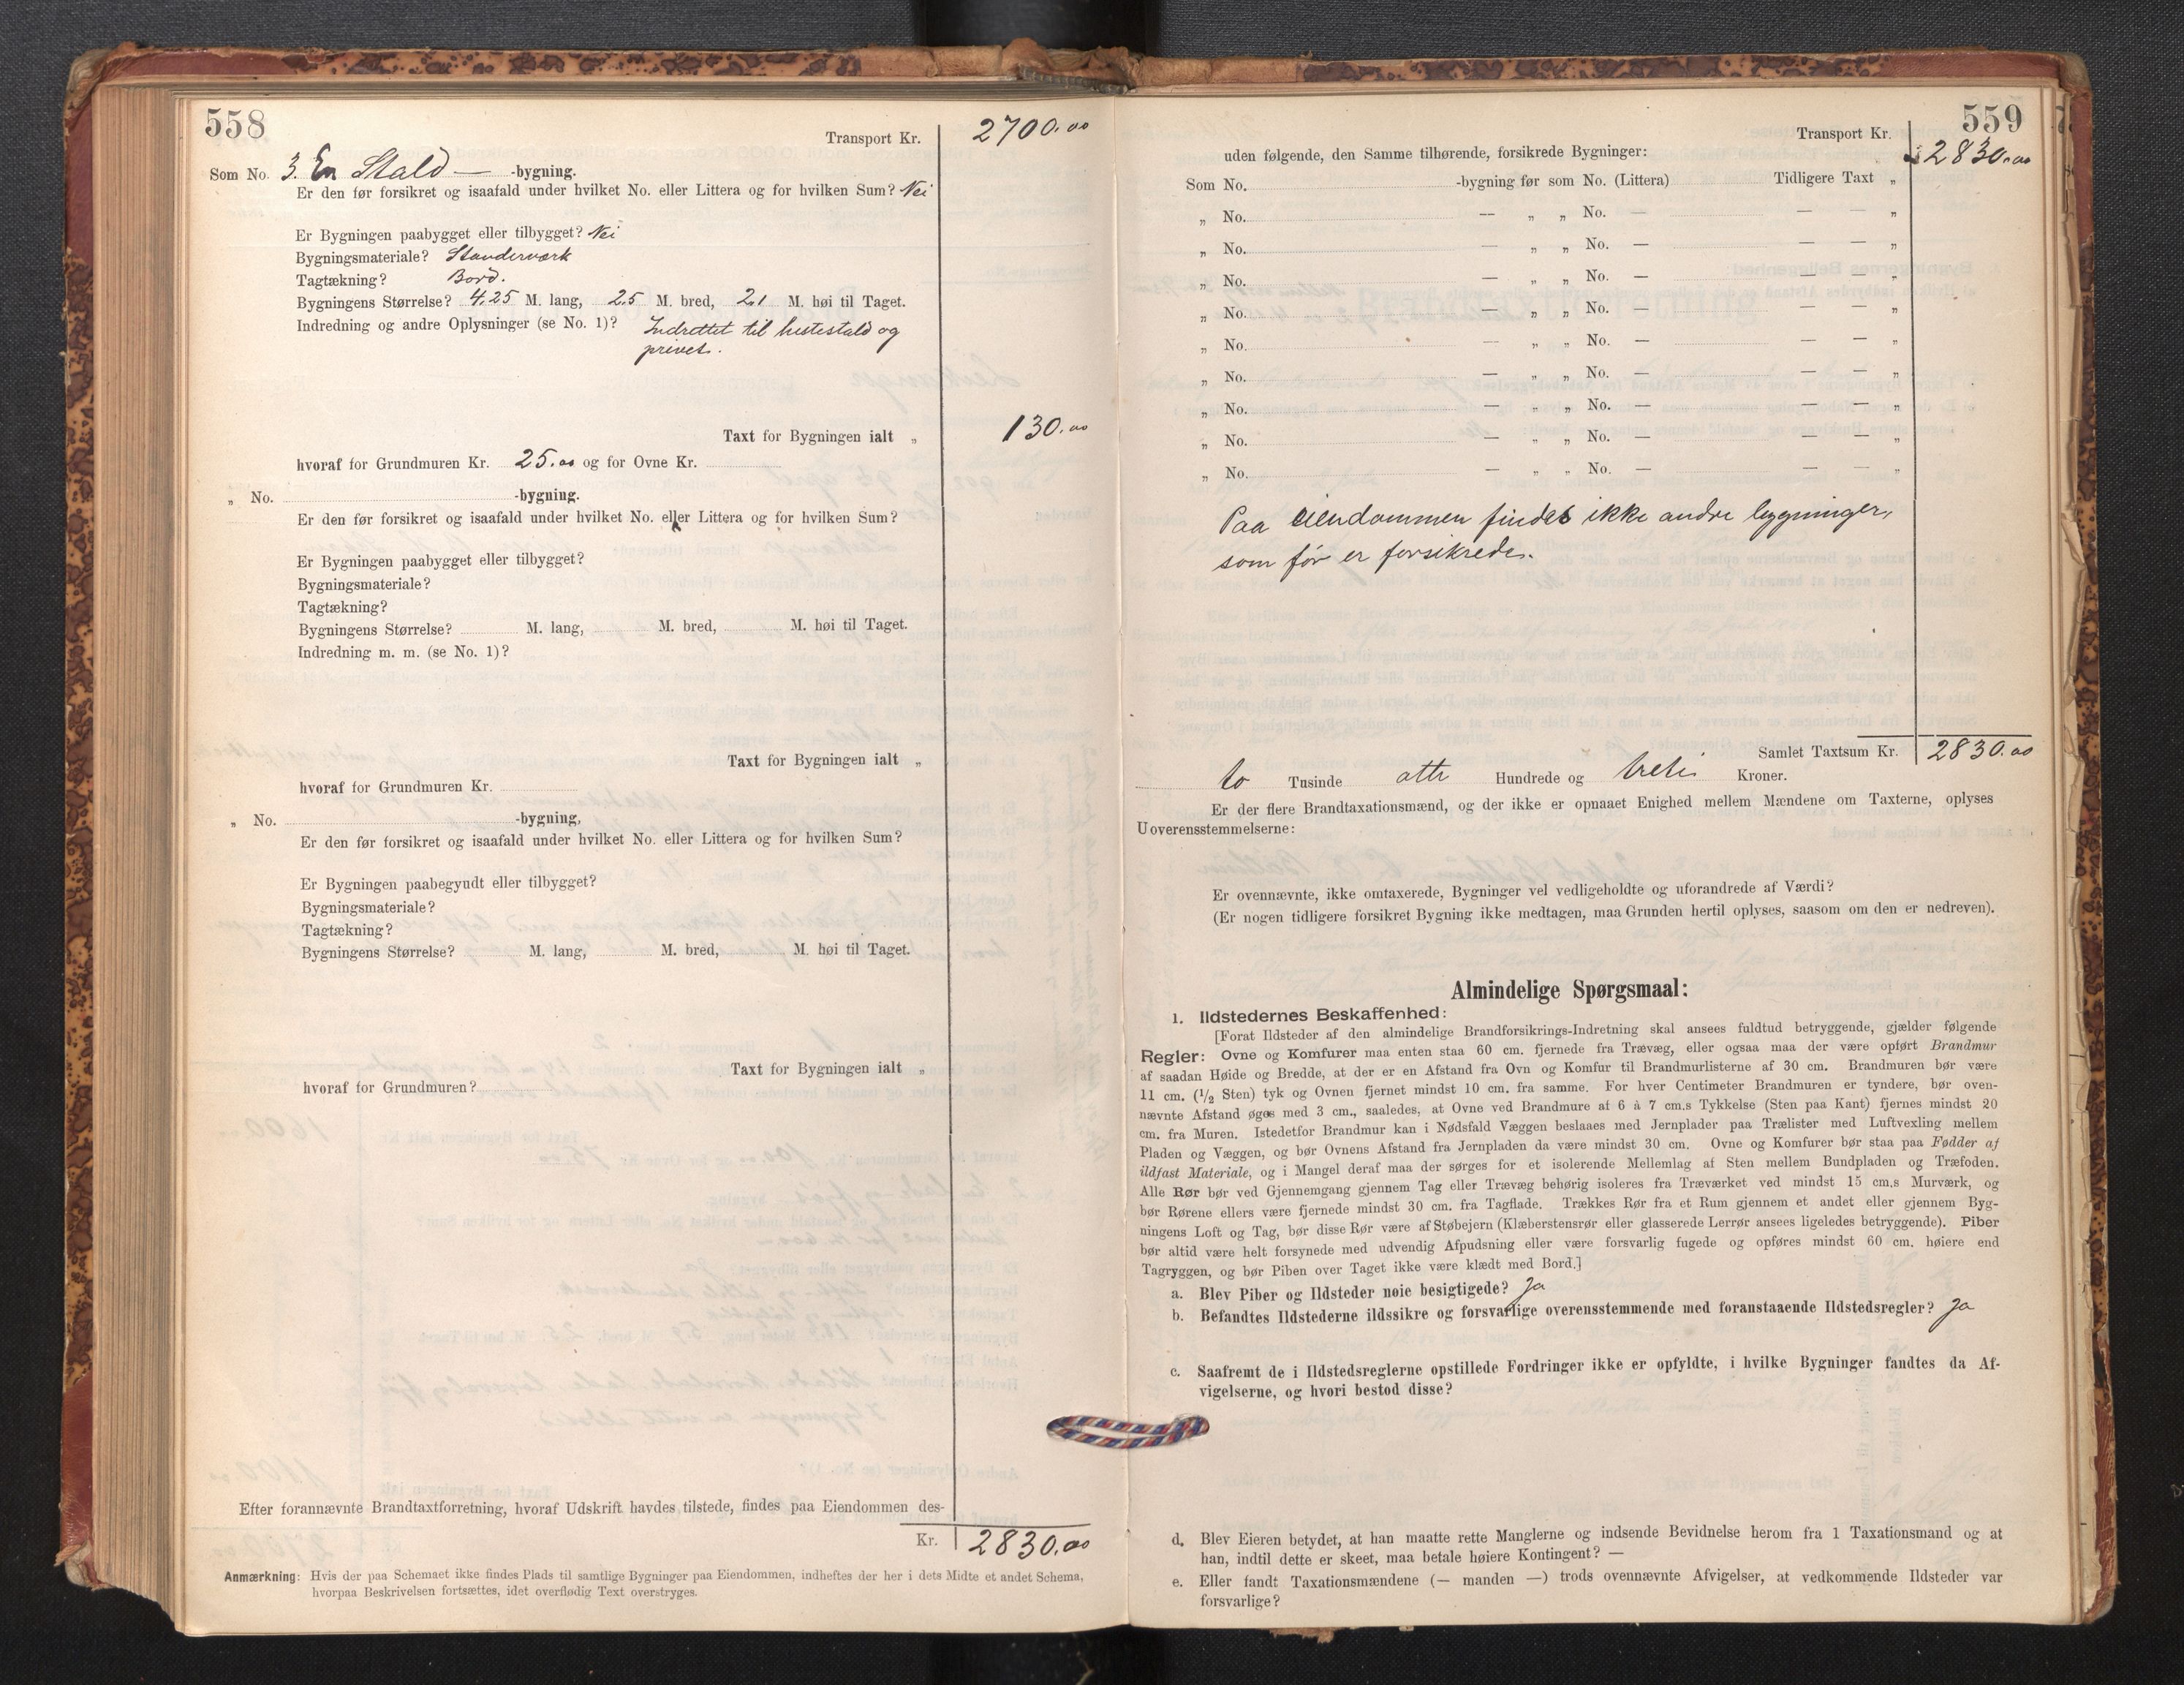 558
Transport Kr. 2700.00
Som No. 3. En Stald — -bygning.
Er den før forsikret og isaafald under hvilket No. eller Littera og for hvilken Sum? Nei
Er Bygningen paabygget eller tilbygget? Nei
Bygningsmateriale? Standerværk
Tagtækning? Bord.
Bygningens Størrelse? 4.25 M. lang, 2.5 M. bred, 2.1 M. høi til Taget.
Indredning og andre Oplysninger (se No. 1)? Indrettet til hestestald og
privet.
Taxt for Bygningen ialt „ 130.00
hvoraf for Grundmuren Kr. 25.00 og for Ovne Kr.
„ No. -bygning.
Er den før forsikret og isaafald under hvilket No. eller Littera og for hvilken Sum?
Er Bygningen paabygget eller tilbygget?
Bygningsmateriale?
Tagtækning?
Bygningens Størrelse? M. lang, M. bred, M. høi til Taget.
Indredning m. m. (se No. 1)?
Taxt for Bygningen ialt „
hvoraf for Grundmuren Kr.
„ No. -bygning,
Er den før forsikret og isaafald under hvilket No. eller Littera og for hvilken Sum?
Er Bygningen paabegyndt eller tilbygget?
Bygningsmateriale?
Tagtækning?
Bygningens Størrelse? M. lang, M. bred, M. høi til Taget.
Taxt for Bygningen ialt „
hvoraf for Grundmuren?
Efter forannævnte Brandtaxtforretning, hvoraf Udskrift havdes tilstede, findes paa Eiendommen des-
Kr. 2830.00
Anmærkning: Hvis der paa Schemaet ikke findes Plads til samtlige Bygninger paa Eiendommen, indheftes der her i dets Midte et andet Schema,
hvorpaa Beskrivelsen fortsættes, idet overflødig Text overstryges.
559
Transport Kr. 2830.00
uden følgende, den Samme tilhørende, forsikrede Bygninger:
Som No. -bygning før som No. (Littera) Tidligere Taxt „
„ No. — „ „ No. — — — „
„ No. — „ „ No. — — — „
„ No. — „ „ No. — — — „
„ No. — „ „ No. — — — „
„ No. — „ „ No. — — — „
„ No. — „ „ No. — — — „
„ No. — „ „ No. — — — „
„ No. — „ „ No. — — — „
„ No. — „ „ No. — — — „
Paa eiendommen findes ikke andre bygninger,
som før er forsikrede.
Samlet Taxtsum Kr. 2830.00
to Tusinde otte Hundrede og treti Kroner.
Er der flere Brandtaxationsmænd, og der ikke er opnaaet Enighed mellem Mændene om Taxterne, oplyses
Uoverensstemmelserne:
Er ovennævnte, ikke omtaxerede, Bygninger vel vedligeholdte og uforandrede af Værdi?
(Er nogen tidligere forsikret Bygning ikke medtagen, maa Grunden hertil oplyses, saasom om den er nedreven).
Almindelige Spørgsmaal:
1. Ildstedernes Beskaffenhed:
[Forat Ildsteder af den almindelige Brandforsikrings-Indretning skal ansees fuldtud betryggende, gjælder følgende
Regler: Ovne og Komfurer maa enten staa 60 cm. fjernede fra Trævæg, eller ogsaa maa der være opført Brandmur
af saadan Høide og Bredde, at der er en Afstand fra Ovn og Komfur til Brandmurlisterne af 30 cm. Brandmuren bør være
11 cm. (1/2 Sten) tyk og Ovnen fjernet mindst 10 cm. fra samme. For hver Centimeter Brandmuren er tyndere, bør oven-
nævnte Afstand øges med 3 cm., saaledes, at Ovne ved Brandmure af 6 à 7 cm.s Tykkelse (Sten paa Kant) fjernes mindst 20
cm. fra Muren. Istedetfor Brandmur kan i Nødsfald Væggen beslaaes med Jernplader paa Trælister med Luftvexling mellem
Pladen og Væggen, og bør Ovnens Afstand fra Jernpladen da være mindst 30 cm. Ovne og Komfurer bør staa paa Fødder af
ildfast Materiale, og i Mangel deraf maa der sørges for et isolerende Mellemlag af Sten mellem Bundpladen og Træfoden.
Alle Rør bør ved Gjennemgang gjennem Tag eller Trævæg behørig isoleres fra Træværket ved mindst 15 cm.s Murværk, og
bør Rørene ellers være fjernede mindst 30 cm. fra Tagflade. Trækkes Rør fra et Rum gjennem et andet eller gjennem Byg-
ningens Loft og Tag, bør disse Rør være af Støbejern (Klæberstensrør eller glasserede Lerrør ansees ligeledes betryggende). Piber
bør altid være helt forsynede med udvendig Afpudsning eller være forsvarlig fugede og opføres mindst 60 cm. høiere end
Tagryggen, og bør Piben over Taget ikke være klædt med Bord.]
a. Blev Piber og Ildsteder nøie besigtigede? Ja
b. Befandtes Ildstederne ildssikre og forsvarlige overensstemmende med foranstaaende Ildstedsregler? Ja
c. Saafremt de i Ildstedsreglerne opstillede Fordringer ikke er opfyldte, i hvilke Bygninger fandtes da Af-
vigelserne, og hvori bestod disse?
d. Blev Eieren betydet, at han maatte rette Manglerne og indsende Bevidnelse herom fra 1 Taxationsmand og at
han, indtil dette er skeet, maa betale høiere Kontingent? —
e. Eller fandt Taxationsmændene (— manden —) trods ovennævnte Afvigelser, at vedkommende Ildsteder var
forsvarlige?